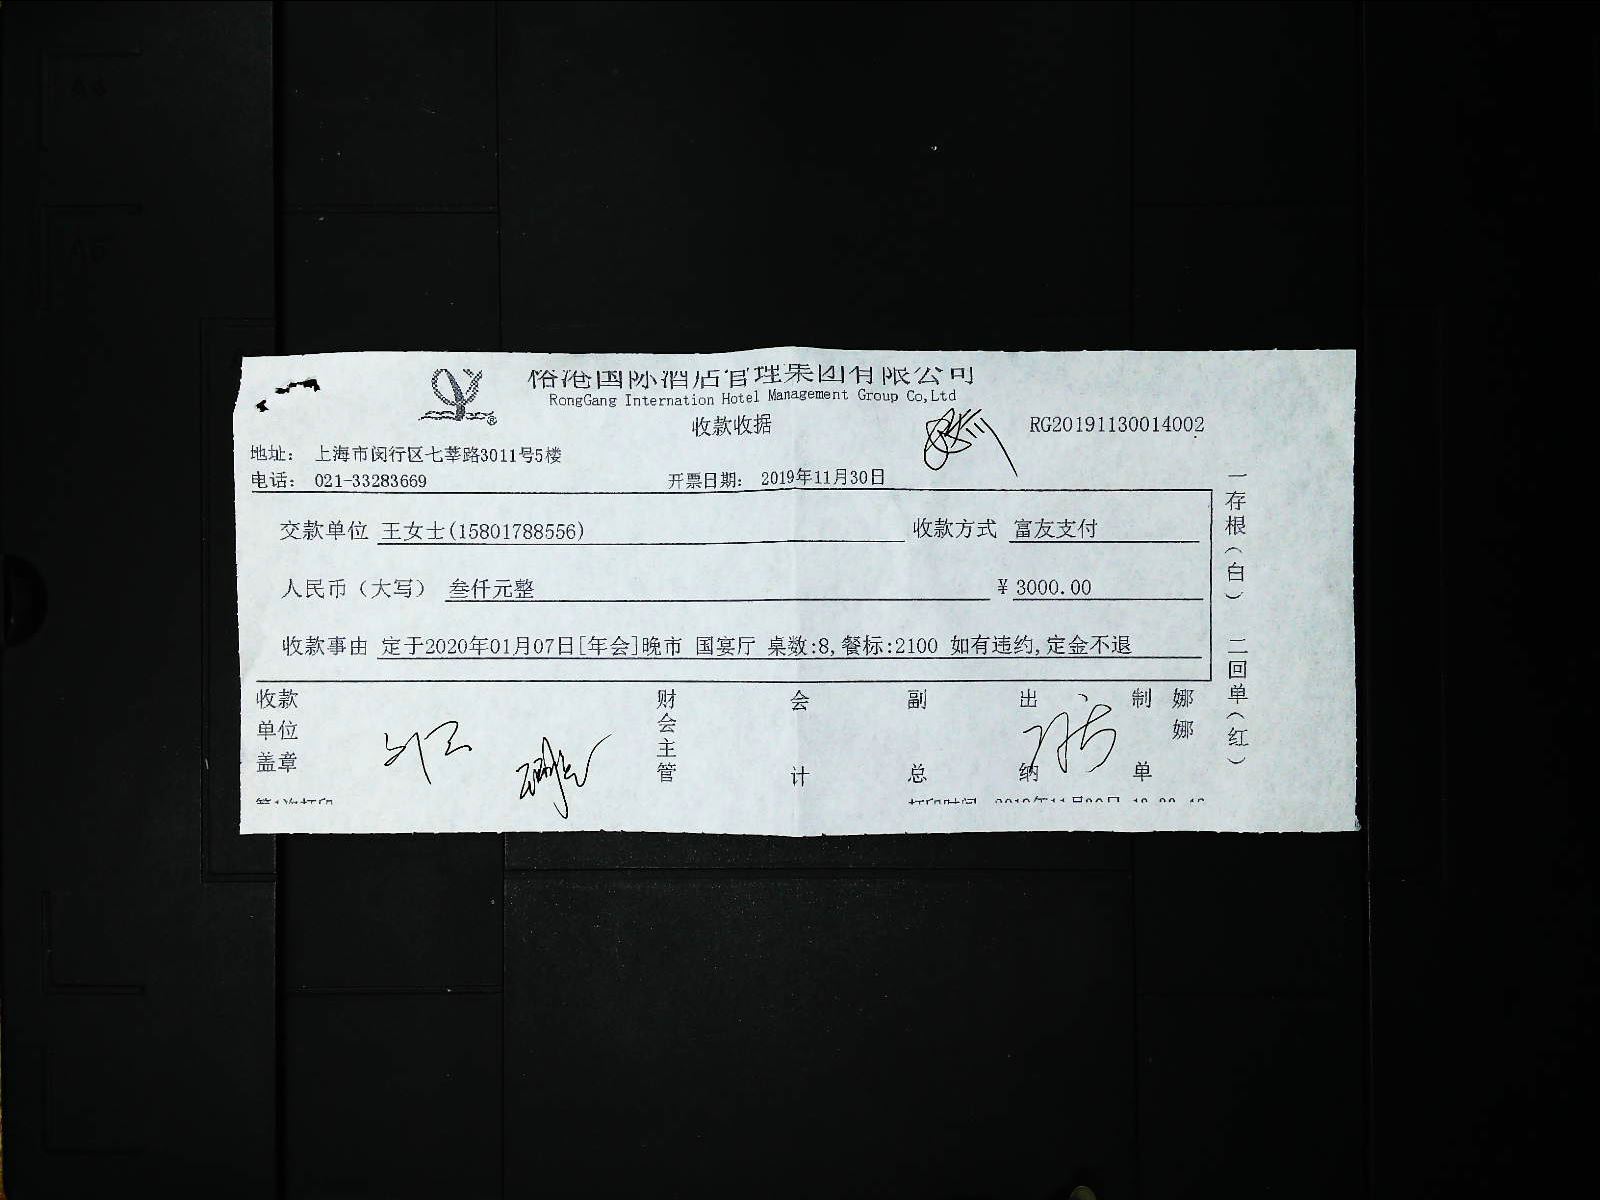 国际酒店管理集团有限公司
RongGang Internation Hotel Management Group Co,Ltd
收款收据
RG20191130014002
地址： 上海市闵行区七莘路3011号5楼
电话： 021-33283669
开票日期： 2019年11月30日
交款单位 王女士(15801788556)
收款方式 富友支付
人民币（大写） 叁仟元整
￥3000.00
收款事由 定于2020年01月07日[年会]晚市 国宴厅 桌数:8,餐标:2100 如有违约,定金不退
收款单位盖章
财会主管
会计
副总
出纳
制单
娜娜
一存根（白） 二回单（红）